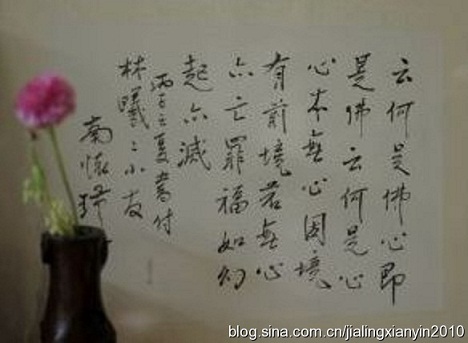 云何是佛心即
是佛云何是心
心本無心因境
有前境若無心
亦亡罪福如幻
起亦滅
丙子夏書付
林曦小友
南懷瑾
blog.sina.com.cn/jialingxianyin2010